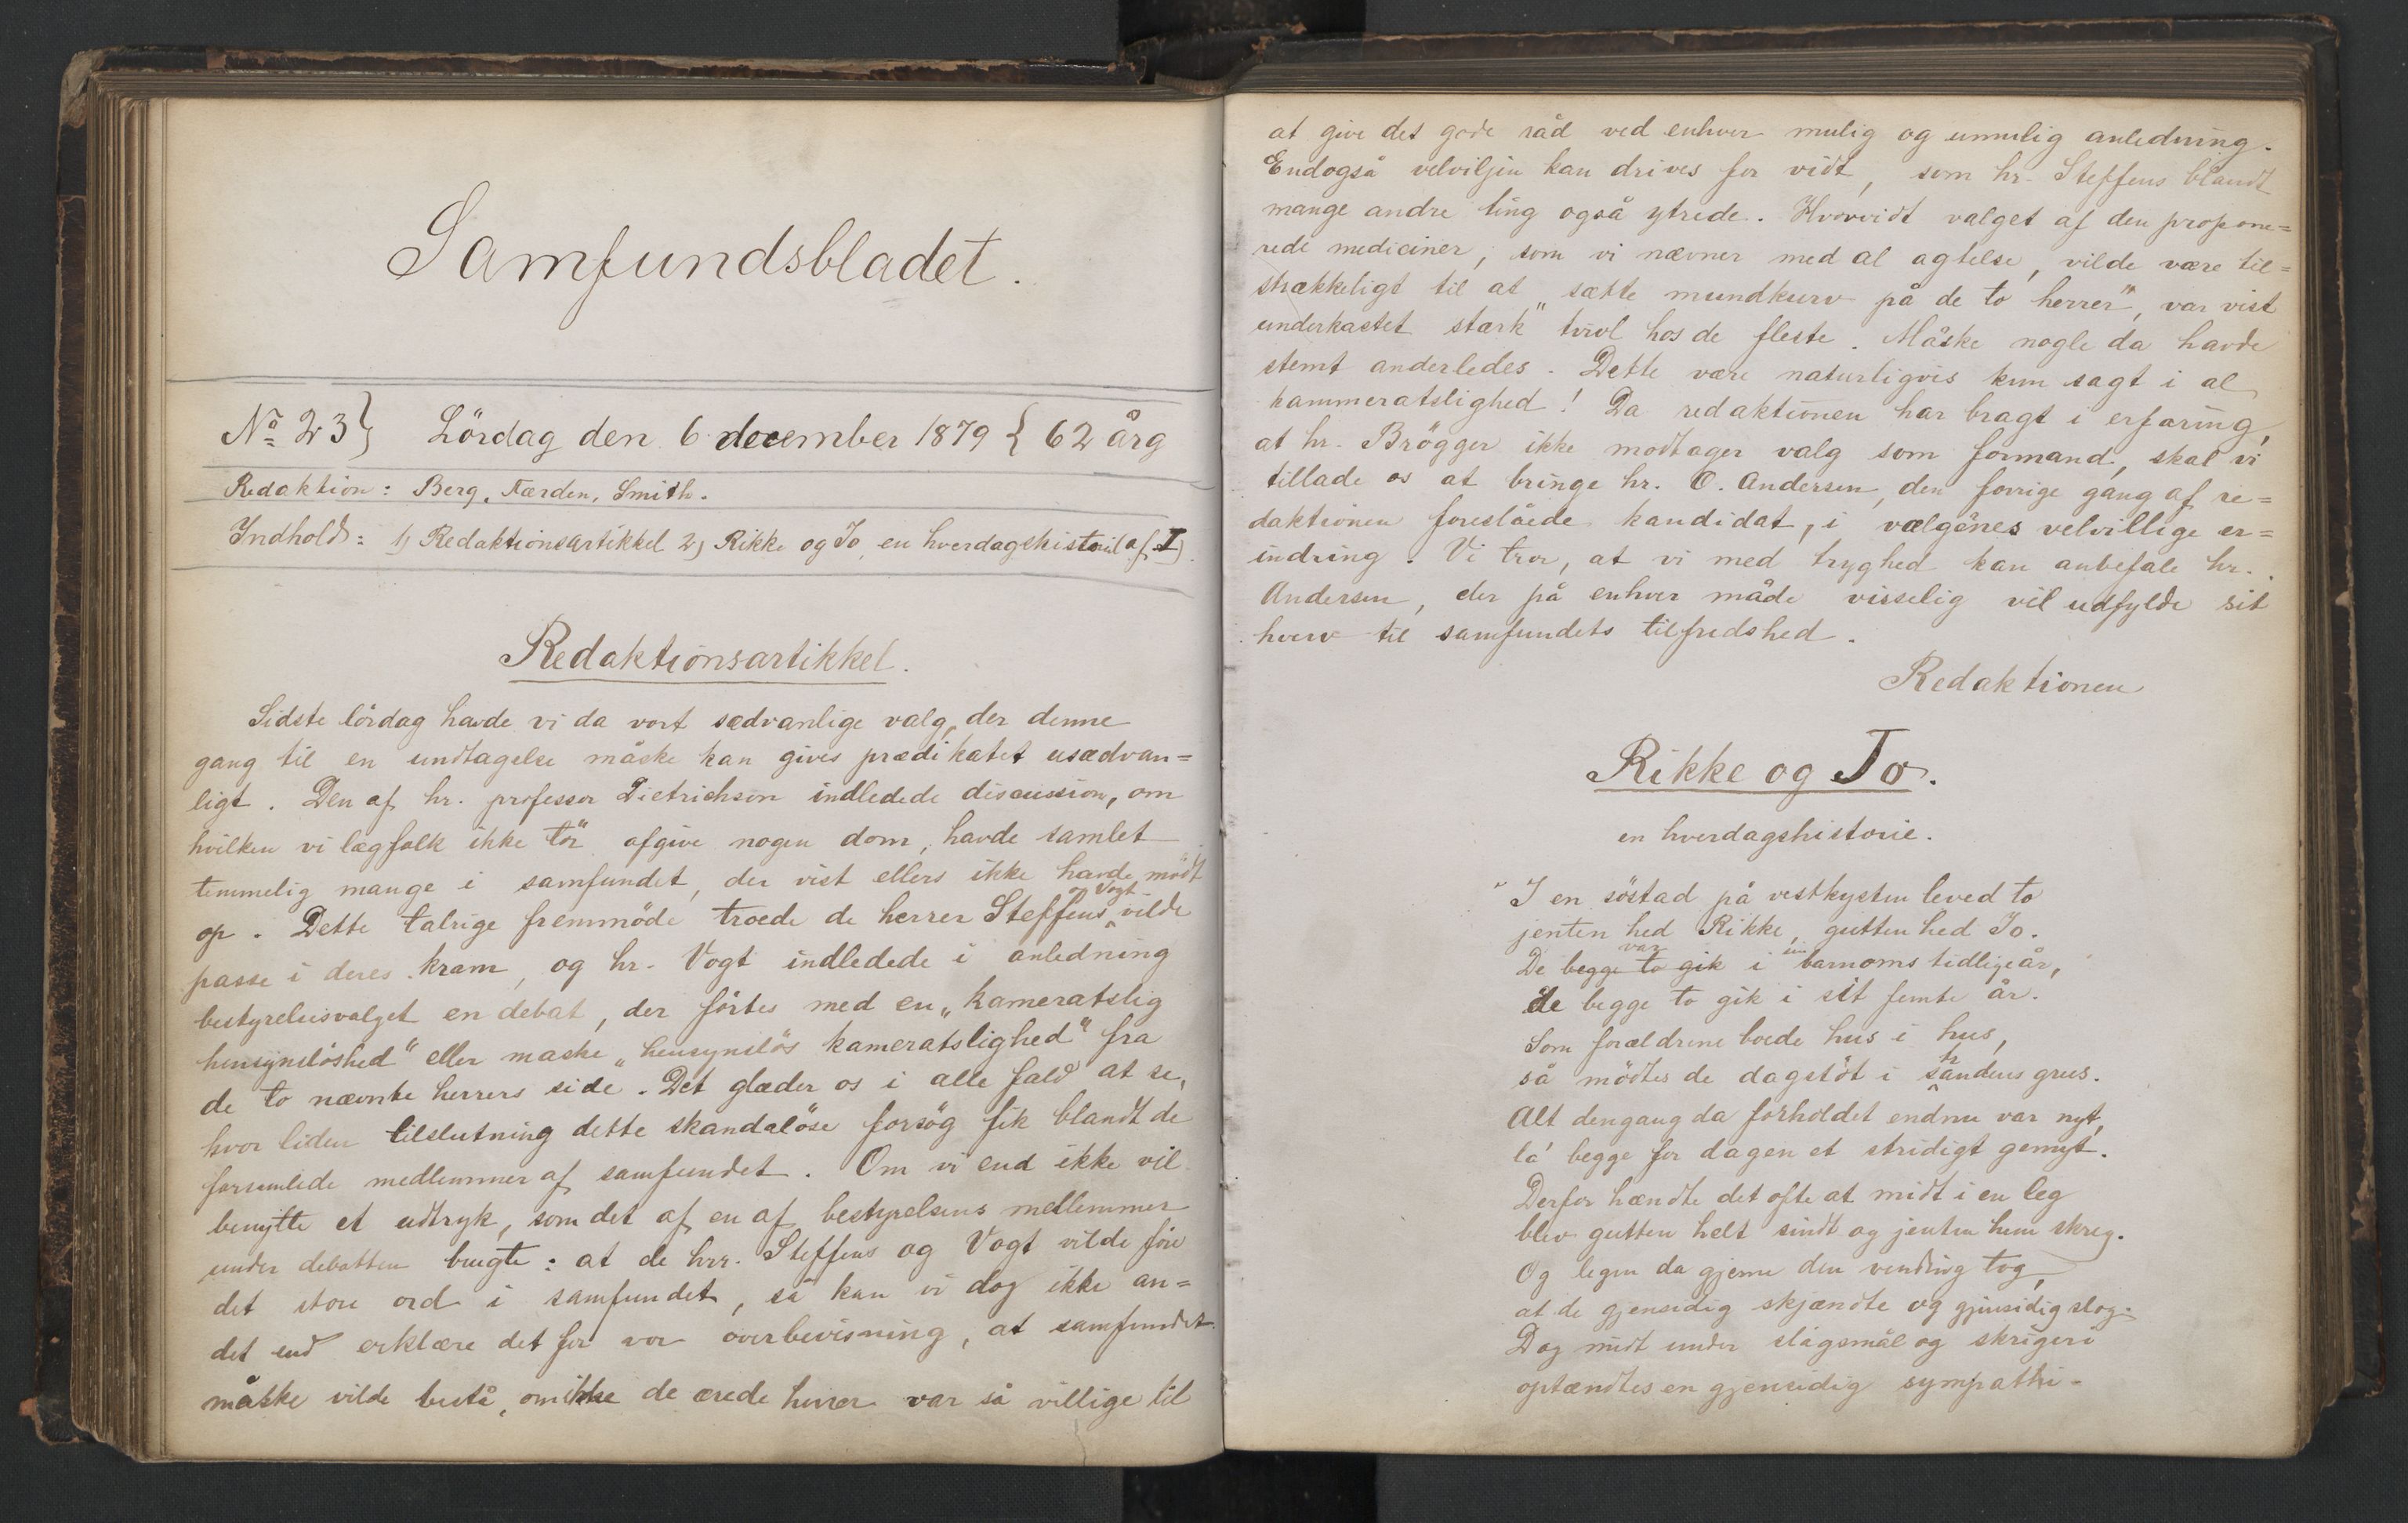 Samfundsbladet.
No 23} Lördag den 6 december 1879 { 62 årg
Redaktion: Berg, Færden, Smith.
Indhold: 1) Redaktionsartikkel 2) Rikke og Jo, en hverdagshistorie (af I).
Redaktionsartikkel.
Sidste lördag havde vi da vort sædvanlige valg, der denne
gang til en undtagelse måske kan gives prædikatet usædvan=
ligt. Den af hr. professor Dietrichson indledede discussion, om
hvilken vi lægfolk ikke tör afgive nogen dom, havde samlet
temmelig mange i samfundet, der vist ellers ikke havde mödt
op. Dette talrige fremmöde troede de herrer Steffens og Vogt vilde
passe i deres kram, og hr. Vogt indledede i anledning
bestyrelsesvalget en debat, der förtes med en „kameratslig
hensynslöshed" eller maske „hensynslös kameratslighed" fra
de to nævnte herrers side. Det glæder os i alle fald at se,
hvor liden tilslutning dette skandalöse forsög fik blandt de
forsamlede medlemmer af samfundet. Om vi end ikke vil
benytte et udtryk, som det af en af bestyrelsens medlemmer
under debatten brugte: at de hrr. Steffens og Vogt vilde före
det store ord i samfundet, så kan vi dog ikke an=
det end erklære det for vor overbevisning, at samfundet
måske vilde bestå, om ikke de ærede herrer var så villige til
at give det gode råd ved enhver mulig og umulig anledning.
Endogså velviljen kan drives for vidt, som hr. Steffens blandt
mange andre ting også ytrede. Hvorvidt valget af den propone=
rede mediciner, som vi nævner med al agtelse, vilde være til=
strækkeligt til at „sætte mundkurv på de to herrer", var vist
underkastet stærk tvivl hos de fleste. Måske nogle da havde
stemt anderledes. Dette være naturligvis kun sagt i al
kammeratslighed! Da redaktionen har bragt i erfaring,
at hr. Brögger ikke modtager valg som formand, skal vi
tillade os at bringe hr. O. Andersen, den forrige gang af re=
daktionen foreslåede kandidat, i vælgernes velvillige er=
indring. Vi tror, at vi med tryghed kan anbefale hr.
Andersen, der på enhver måde visselig vil udfylde sit
hverv til samfundets tilfredshed.
Redaktionen
Rikke og Jo.
en hverdagshistorie.
I en söstad på vestkysten leved to
jenten hed Rikke, gutten hed Jo.
De begge var to gik i sin barnoms tidlige år,
de begge to gik i sit femte år.
Som forældrene boede hus i hus,
så mödtes de dagstöt i strandens grus.
Alt dengang da forholdet endnu var nyt,
la' begge for dagen et stridigt gemyt.
Derfor hændte det ofte at midt i en leg
blev gutten helt sindt og jenten hun skreg.
Og legen da gjerne den vending tog,
at de gjensidig skjændte og gjensidig slog.
Dog midt under slagsmål og skrigeri
optændtes en gjensidig sympathi-